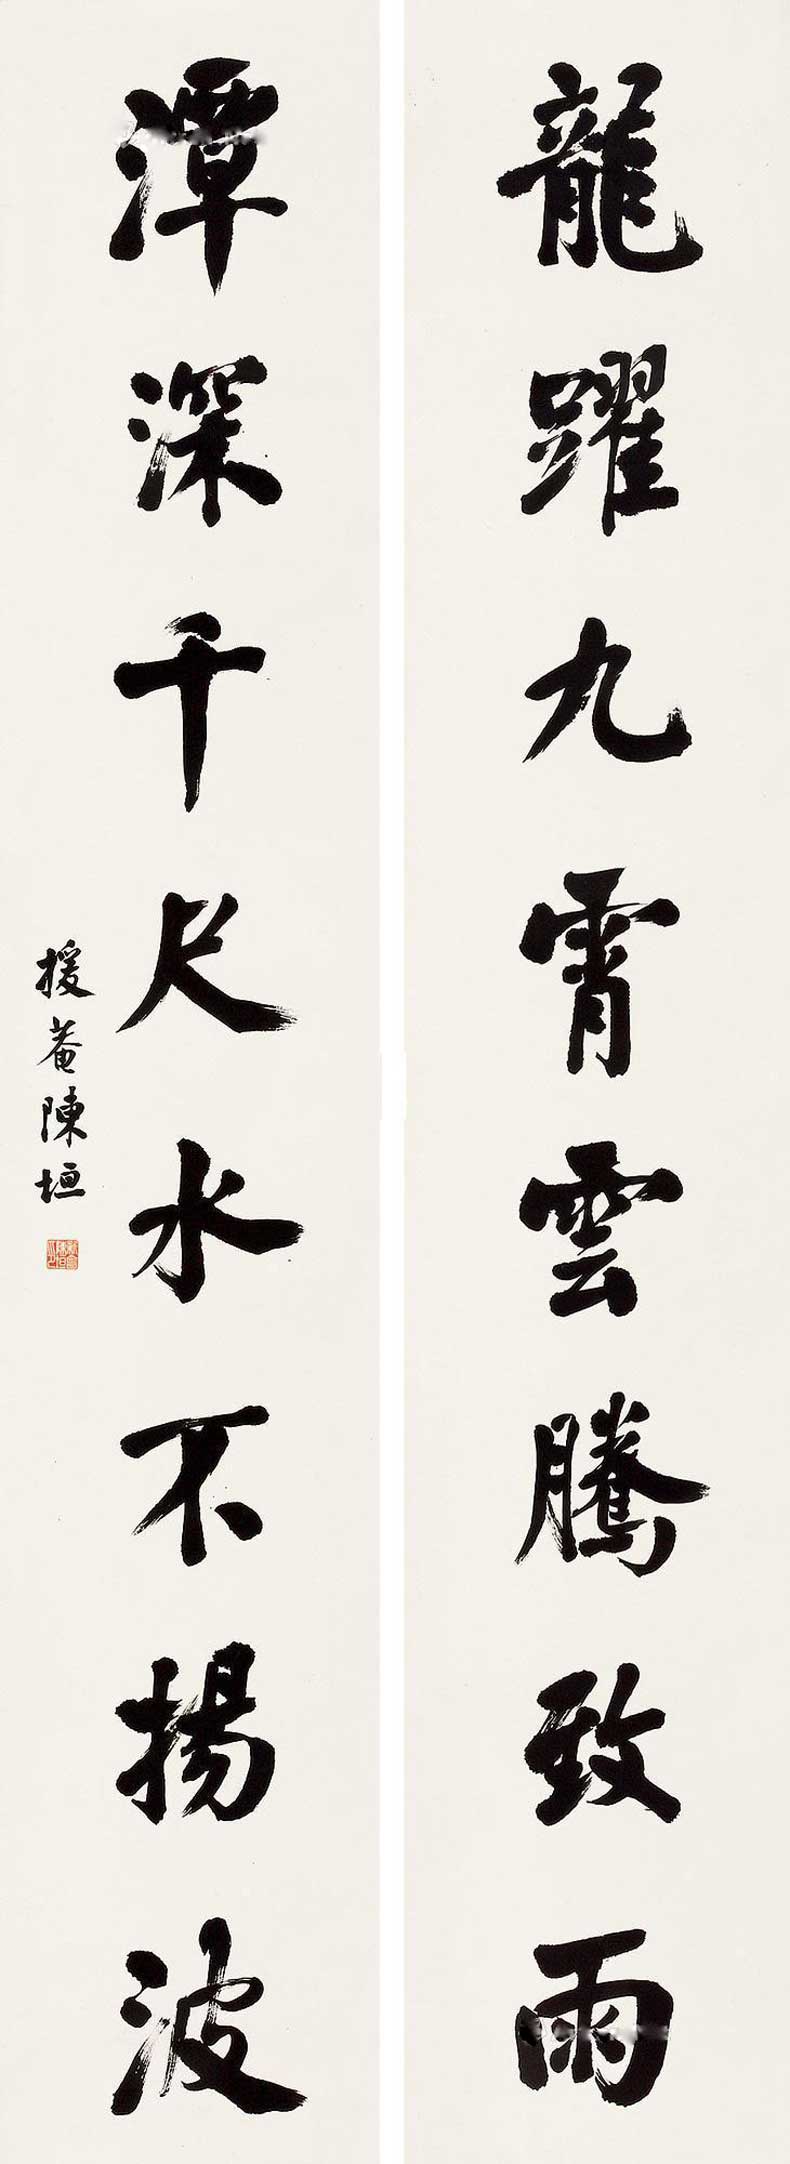 龍躍九霄雲騰致雨
潭深千尺水不揚波
援菴陳垣